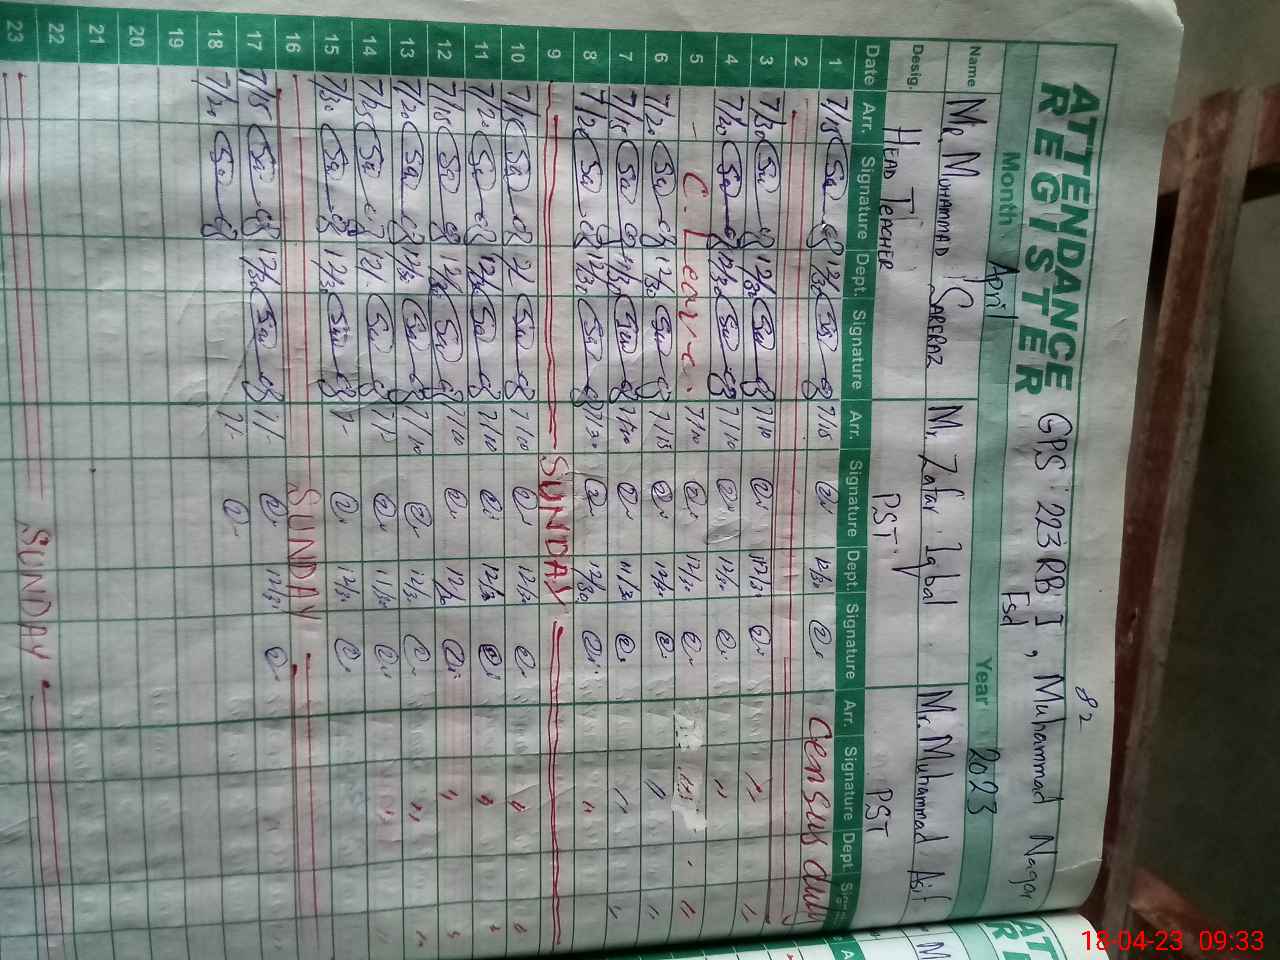 82
ATTENDANCE REGISTER
GPS 223 RB I, Muhammad Nagar
Fsd
Month April Year 2023
Name Mr. Muhammad Sarfraz Mr. Zafar Iqbal Mr. Muhammad Asif
Desig. Head Teacher PST PST
Date Arr. Signature Dept. Signature Arr. Signature Dept. Signature Arr. Signature Dept.
1 7/15 12/30 7/15 12/30 Census duty
2
3 7/20 12/30 7/10 12/30 "
4 7/20 12/30 7/10 12/30 "
5 - C. Leave. 7/10 12/30 "
6 7/20 12/30 7/15 12/30 "
7 7/15 11/30 7/10 11/30 "
8 7/20 12/30 7/30 12/30 "
9 SUNDAY
10 7/15 7/10 12/30 "
11 7/20 12/30 7/10 12/30 "
12 7/15 12/30 7/10 12/30 "
13 7/20 12/30 7/10 12/30 "
14 7/25 11/30 "
15 7/20 12/30 7/- 12/30
16 SUNDAY
17 7/15 12/30 7/- 12/30
18 7/20 7/-
19
20
21
22
23 SUNDAY
18-04-23 09:33